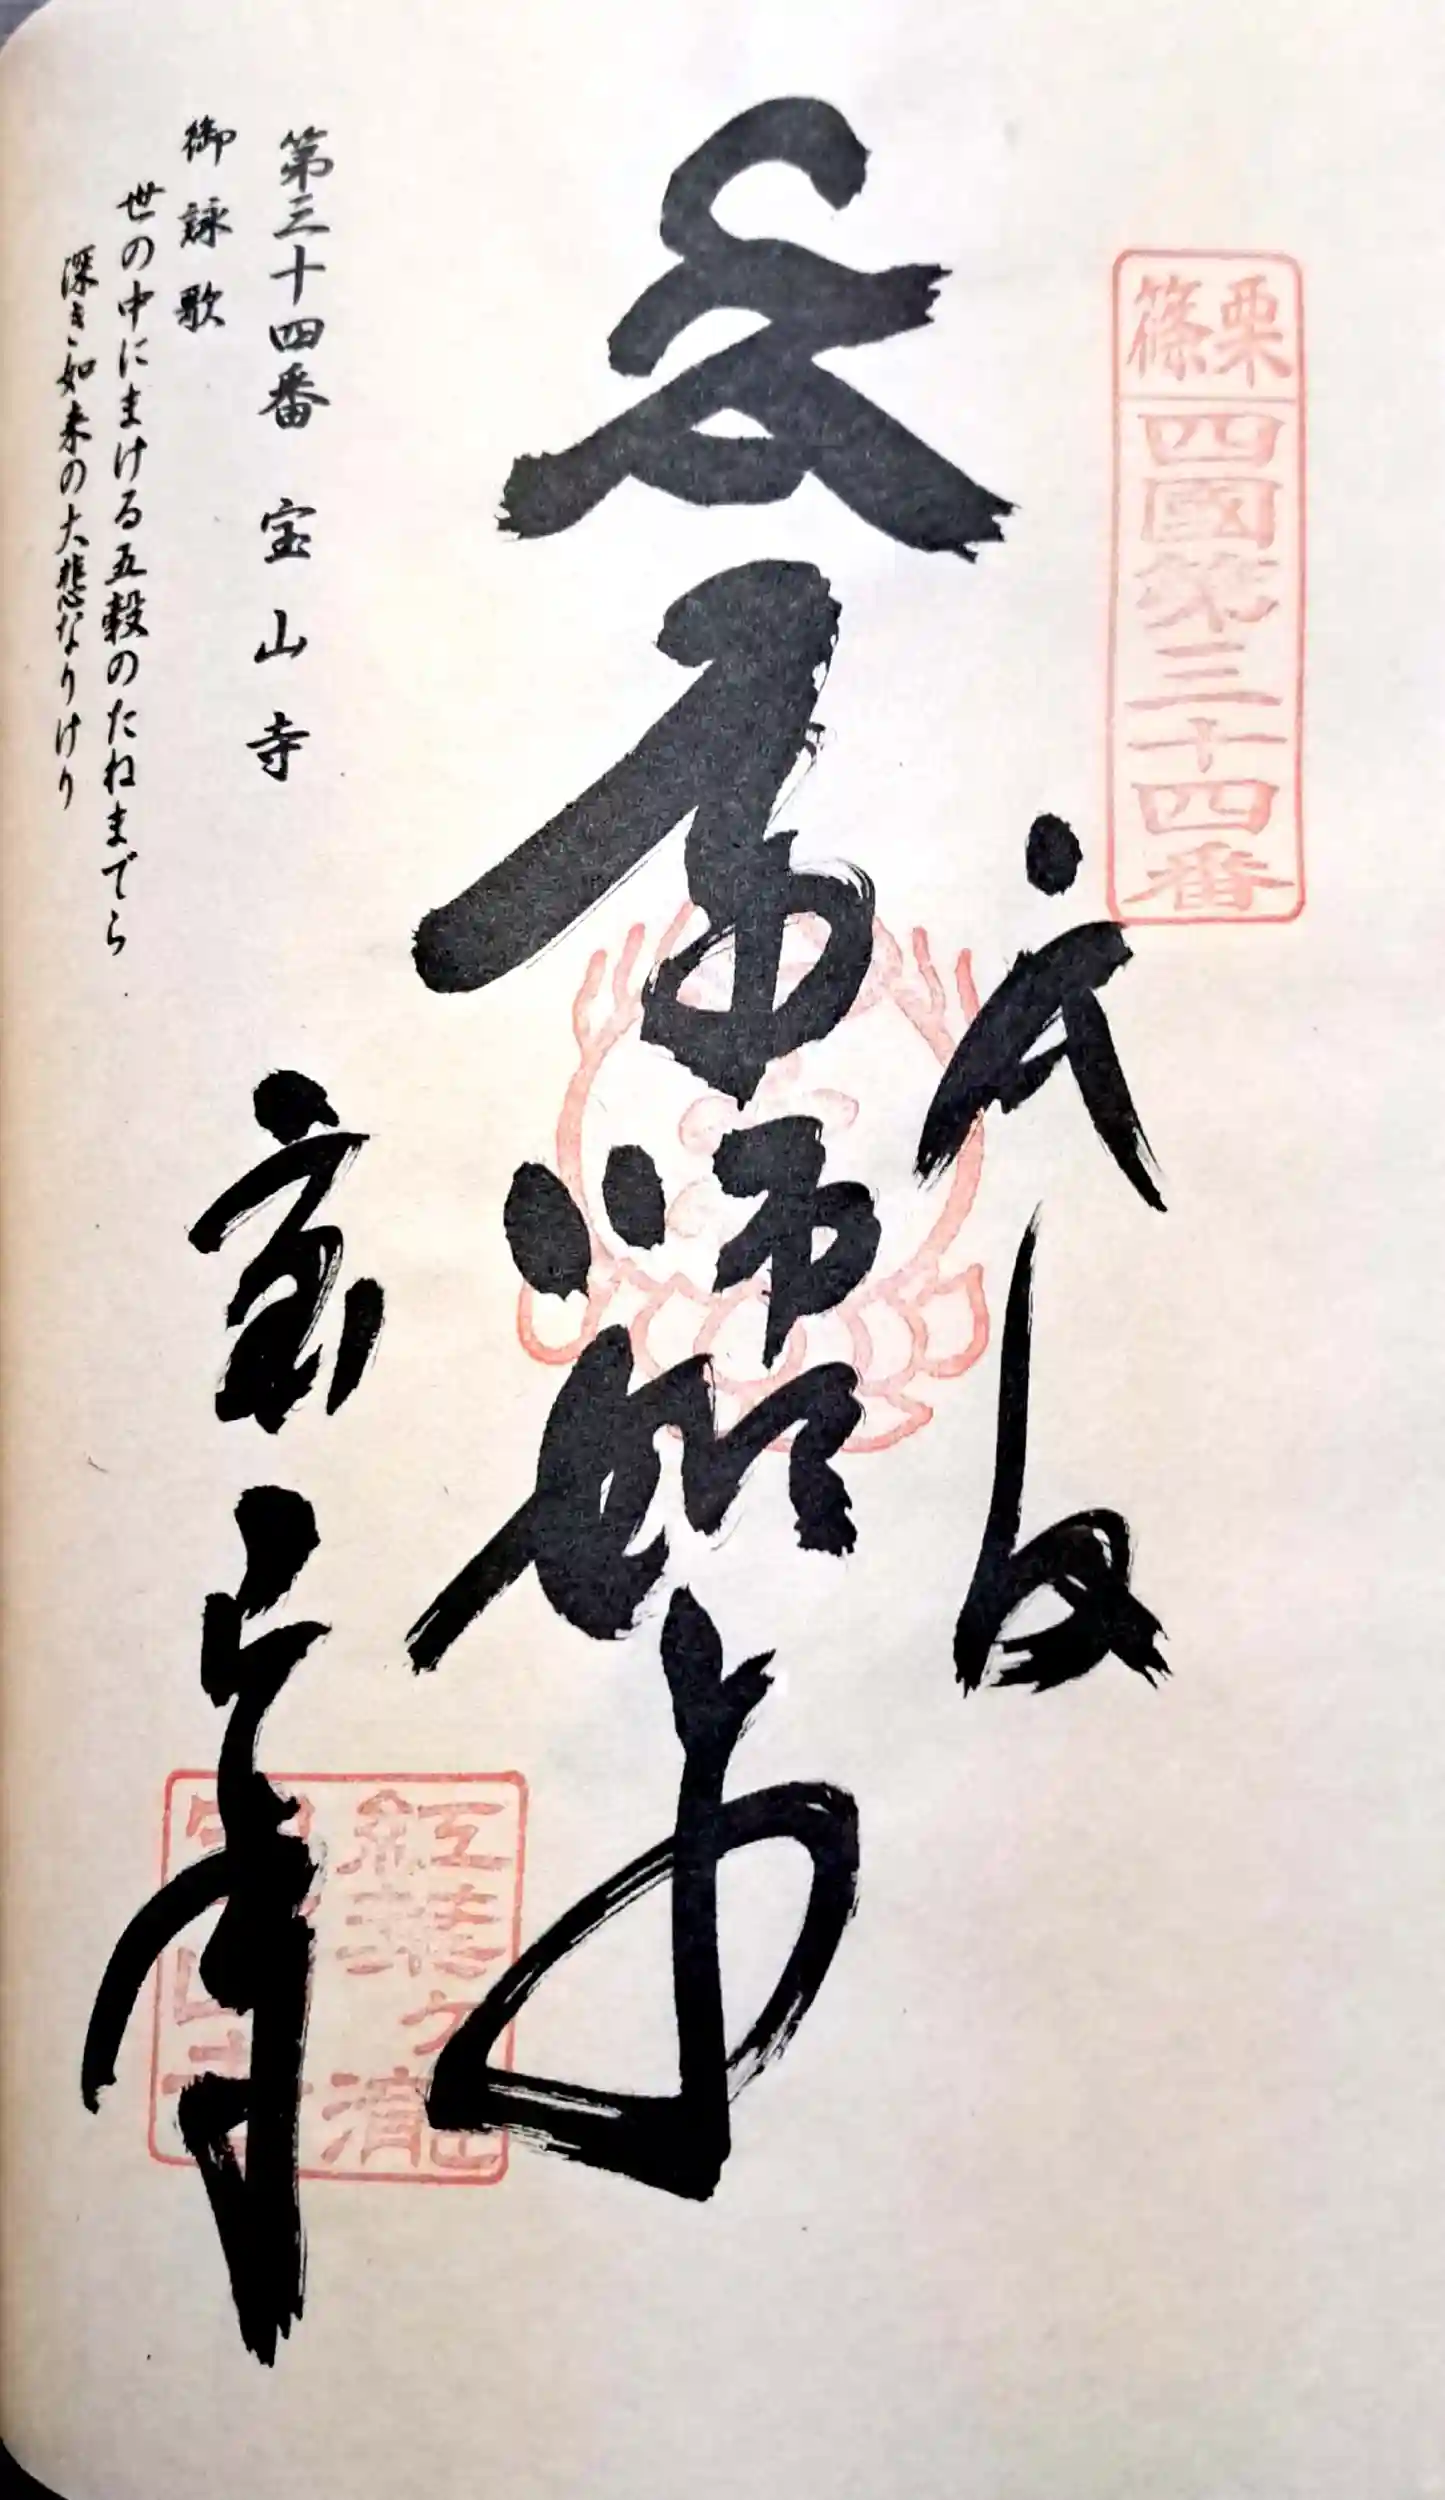 篠栗
四國第三十四番
奉拝
本
薬師如来
宝山寺
紅葉ヶ瀧
宝山寺
第三十四番 宝山寺
御詠歌
世の中にまける五穀のたねまでら
深き如来の大悲なりけり